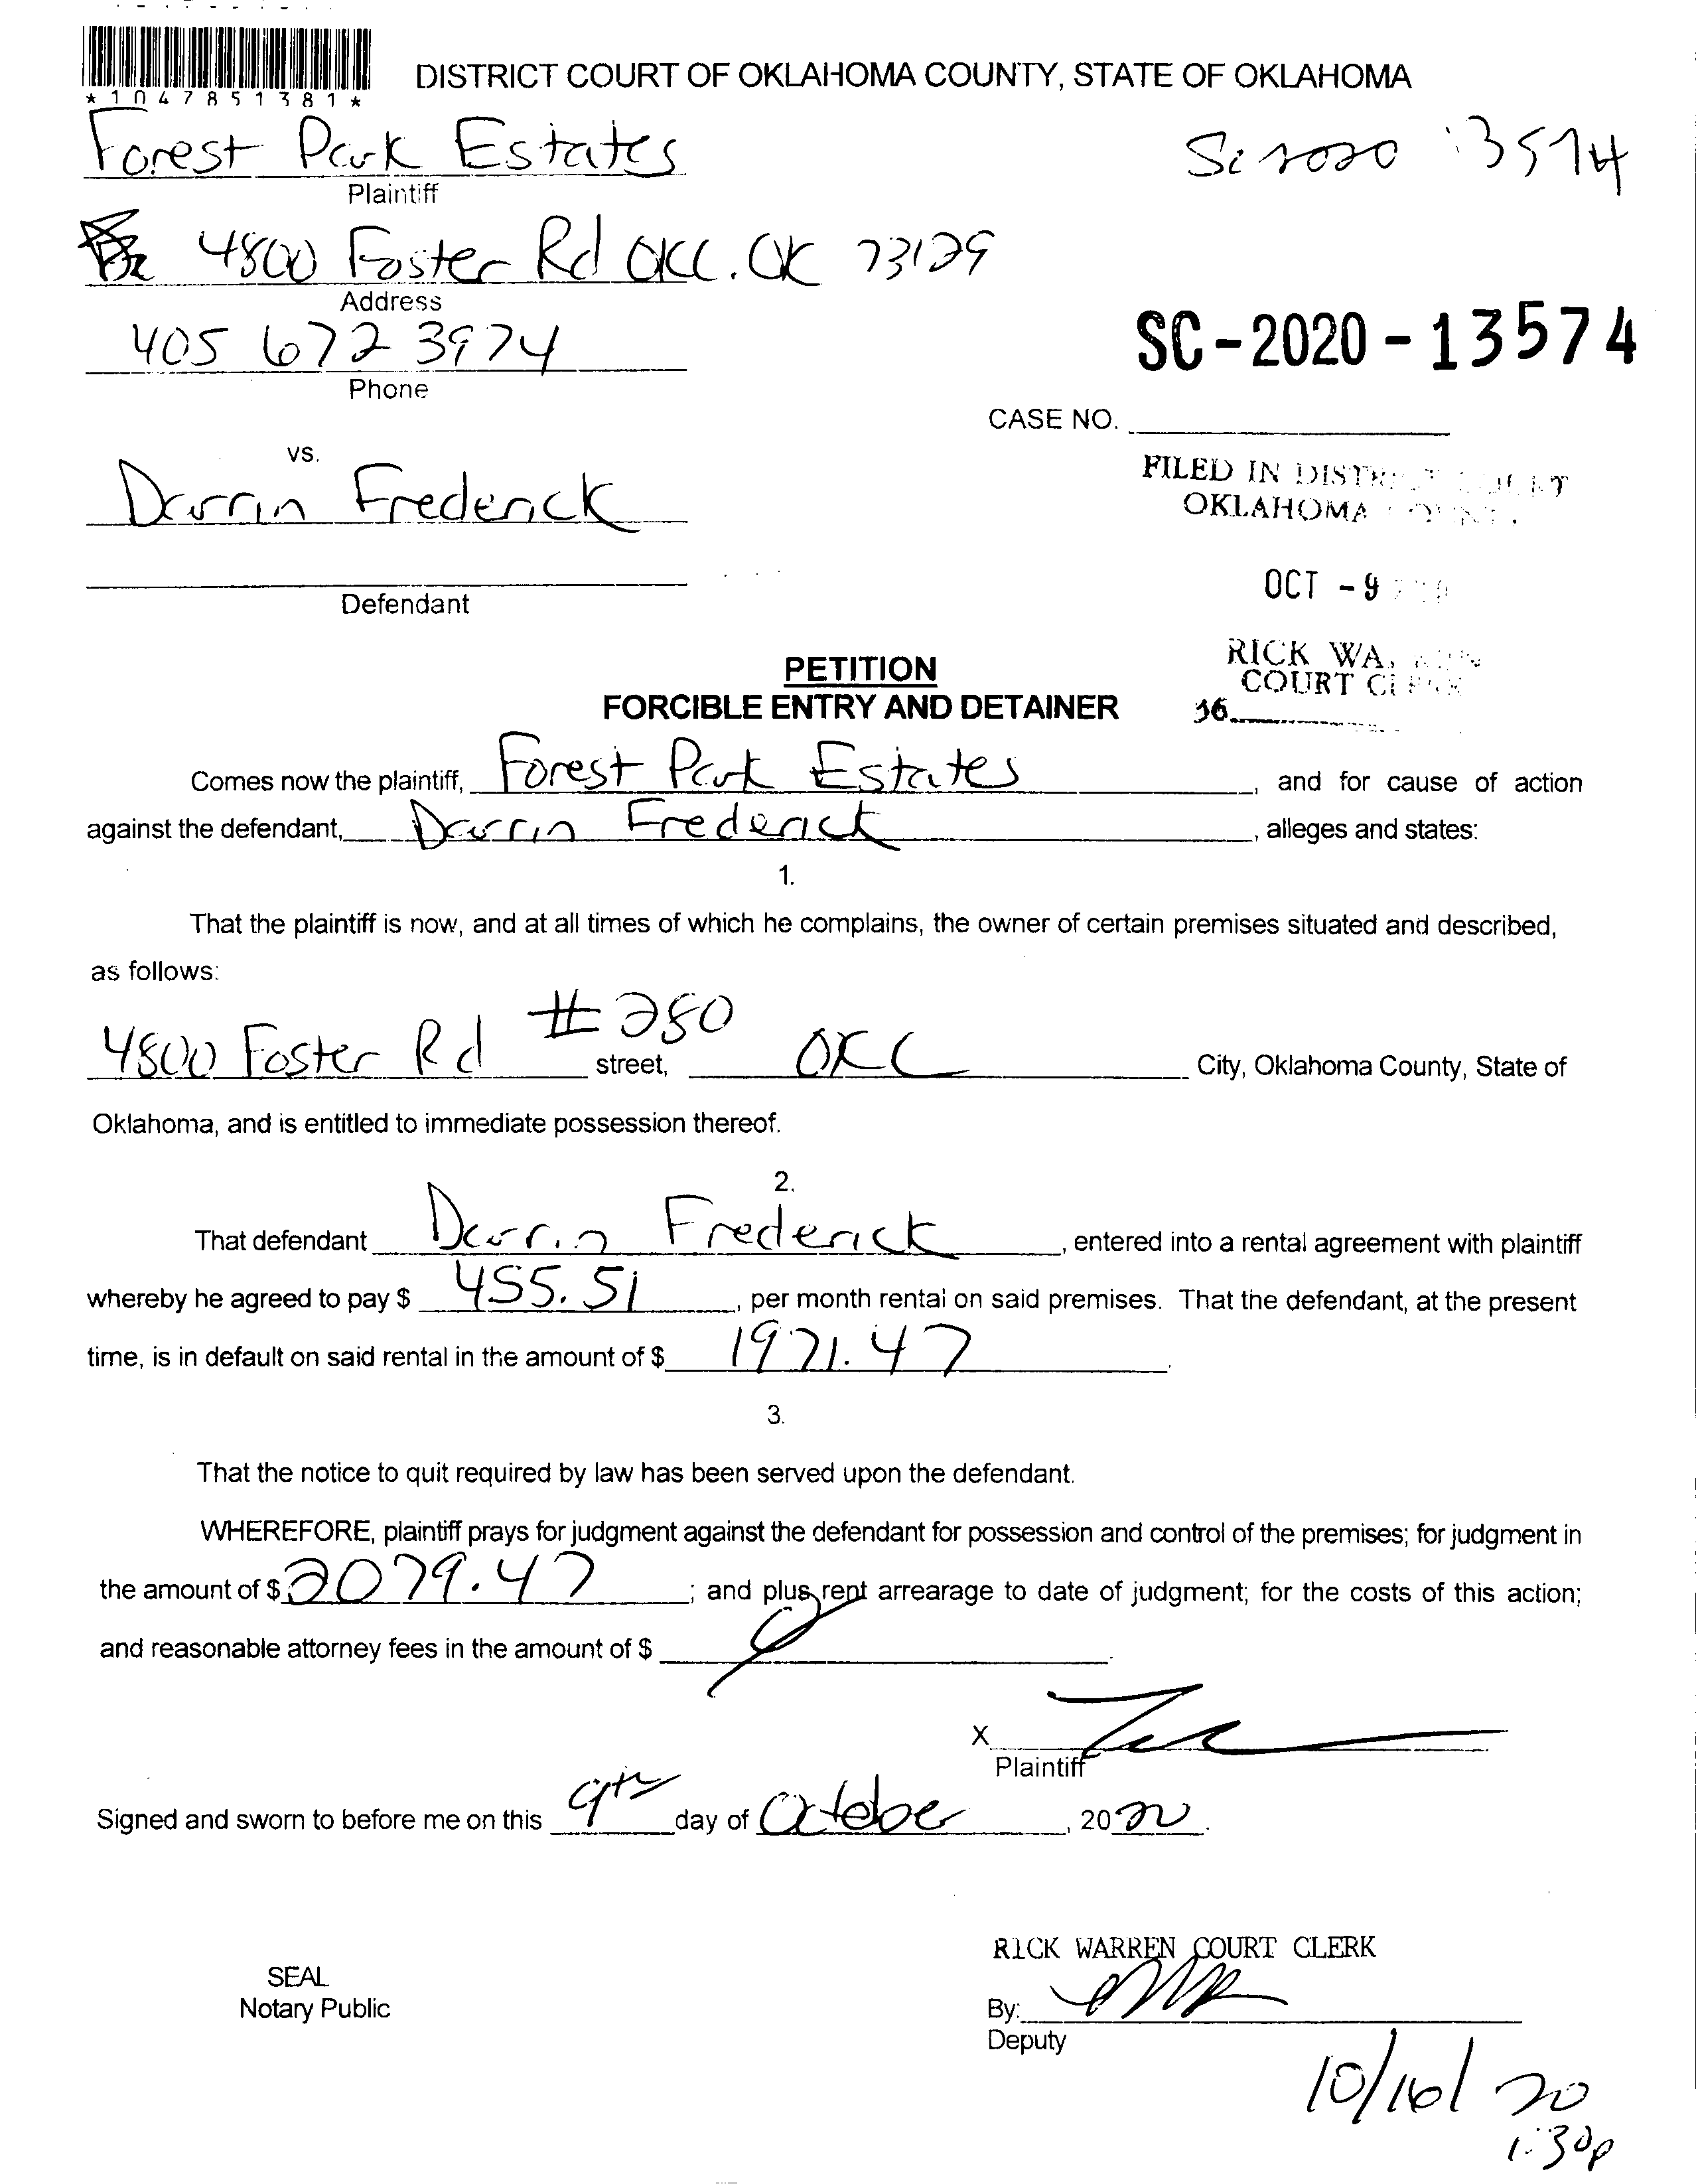 *1047851381*
DISTRICT COURT OF OKLAHOMA COUNTY, STATE OF OKLAHOMA
Forest Park Estates
Plaintiff
4800 Foster Rd OKC. OK 73129
Address
405 672 3974
Phone
SC-2020-13574
CASE NO.
vs.
Darrin Frederick
Defendant
FILED IN DISTRICT COURT
OKLAHOMA COUNTY
OCT -9
RICK WARREN
COURT CLERK
36
PETITION
FORCIBLE ENTRY AND DETAINER
Comes now the plaintiff, Forest Park Estates, and for cause of action
against the defendant, Darrin Frederick, alleges and states:
1.
That the plaintiff is now, and at all times of which he complains, the owner of certain premises situated and described,
as follows:
4800 Foster Rd #280 street, OKC City, Oklahoma County, State of
Oklahoma, and is entitled to immediate possession thereof.
2.
That defendant Darrin Frederick, entered into a rental agreement with plaintiff
whereby he agreed to pay $ 455.51, per month rental on said premises. That the defendant, at the present
time, is in default on said rental in the amount of $ 1971.47.
3.
That the notice to quit required by law has been served upon the defendant.
WHEREFORE, plaintiff prays for judgment against the defendant for possession and control of the premises; for judgment in
the amount of $ 2079.47; and plus rent arrearage to date of judgment; for the costs of this action;
and reasonable attorney fees in the amount of $
X
Plaintiff
Signed and sworn to before me on this 9th day of October, 2020.
RICK WARREN COURT CLERK
SEAL
Notary Public
By:
Deputy
10/16/20
1:30p